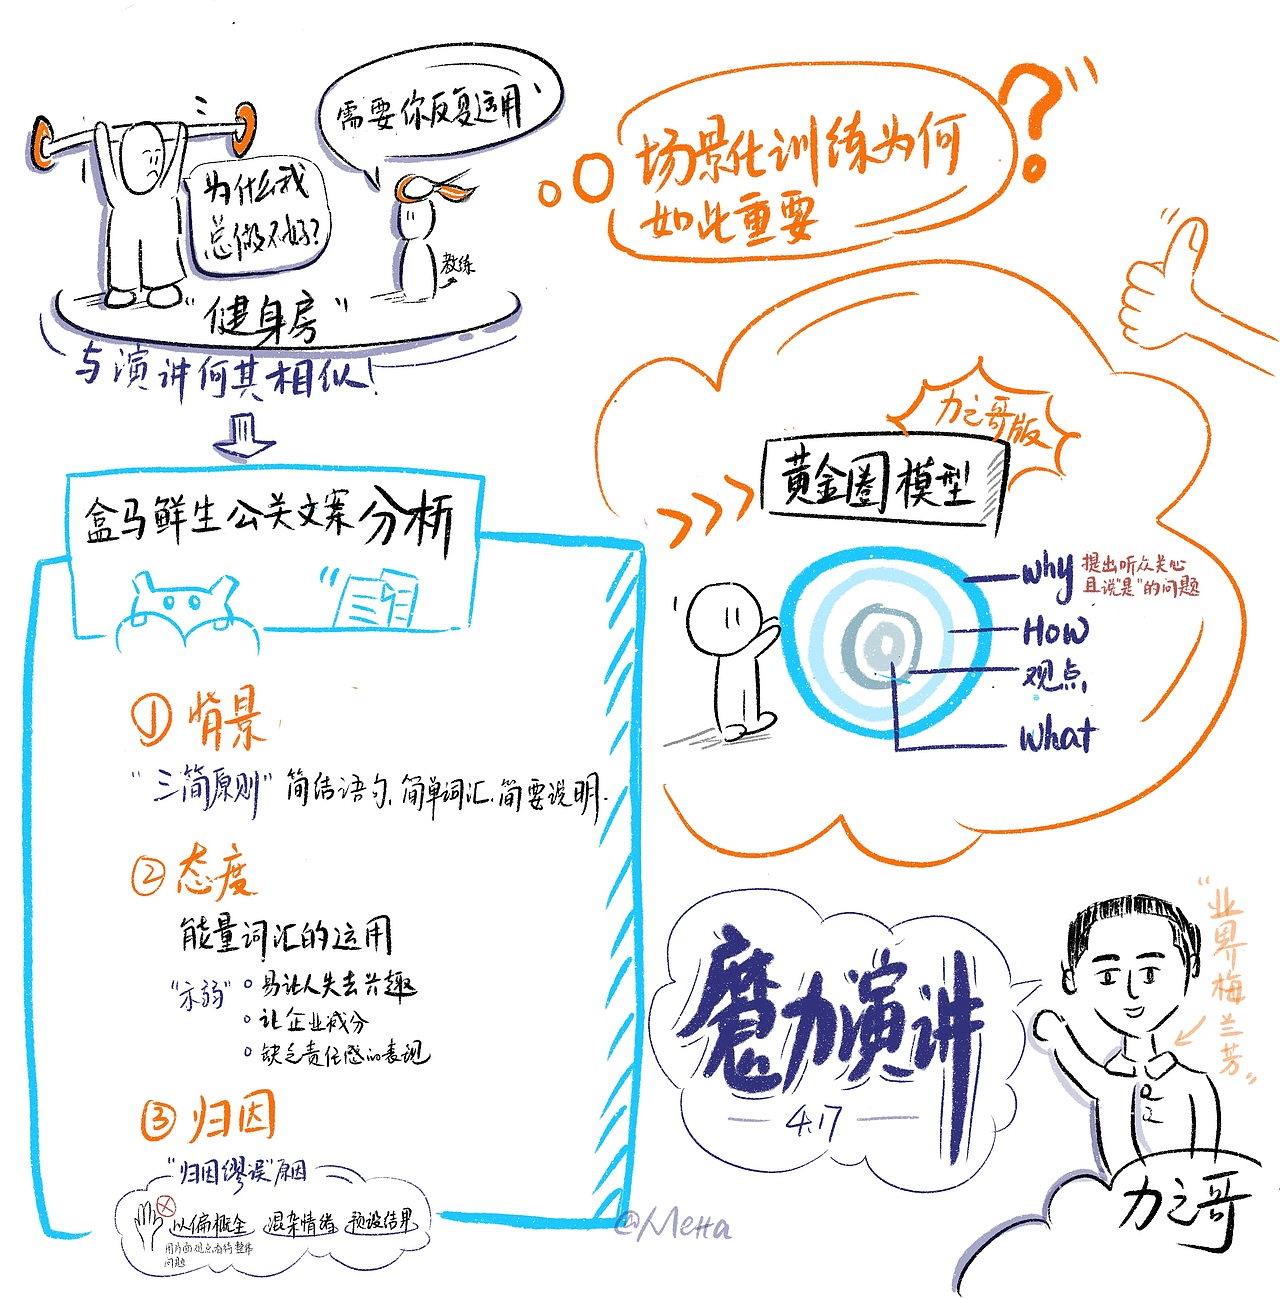 需要你反复运用
为什么我
总做不好?
教练
“健身房”
与演讲何其相似!
场景化训练为何
如此重要
?
盒马鲜生公关文案分析
① 背景
“三简原则” 简结语句、简单词汇、简要说明.
② 态度
能量词汇的运用
“示弱” 。易让人失去兴趣
。让企业减分
。缺乏责任感的表现
③ 归因
“归因缪误”原因
以偏概全 混杂情绪 预设结果
用片面观点看待整体
问题
力之哥版
黄金圈模型
why 提出听众关心
且说“是”的问题
How
观点
what
魔力演讲
4.17
“业界梅兰芳”
力之哥
@Meнa